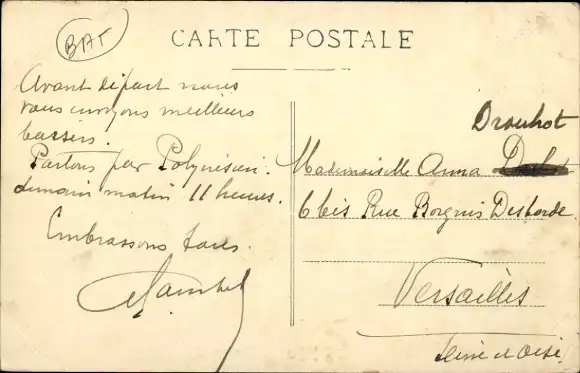 BAT
CARTE POSTALE
Avant départ nous
vous envoyons meilleurs
baisers.
Partons par Polynésien.
demain matin 11 heures.
Embrassons tous.
Drouhot
Mademoiselle Anna
6 bis Rue Borgnis Desborde
Versailles
Seine et Oise